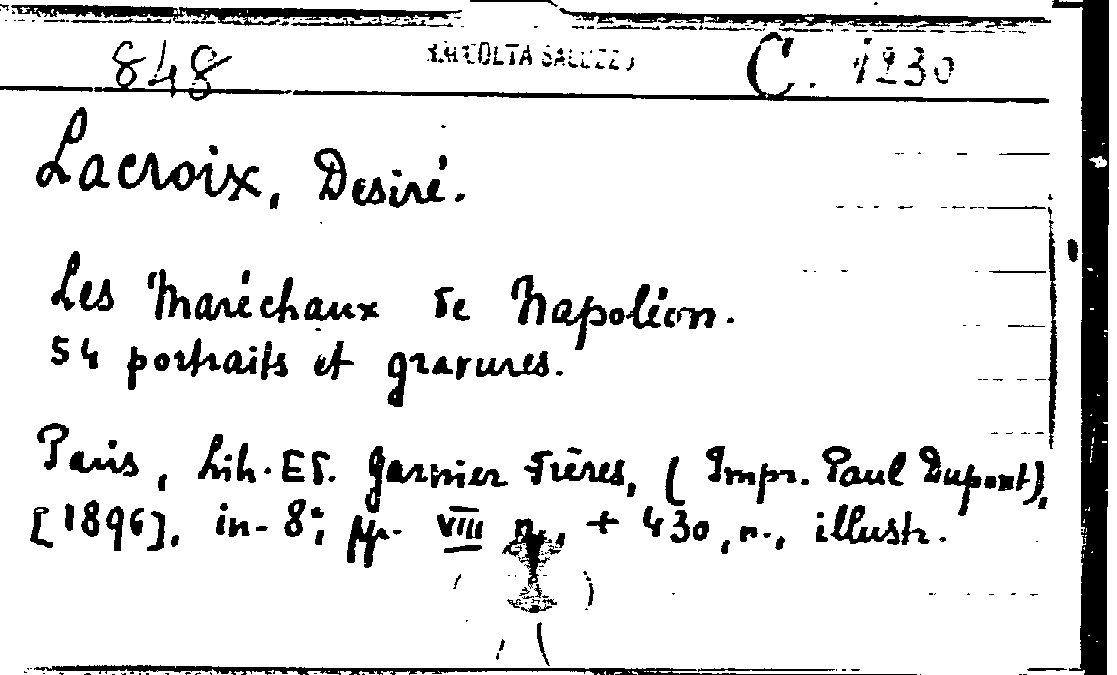 848 RACCOLTA SALUZZO C. 1230
Lacroix, Desiré.
Les Maréchaux de Napoléon.
54 portraits et gravures.
Paris, Lib. Ed. Garnier Frères, (Impr. Paul Dupont),
[1896], in-8°; pp. VIII n., + 430, n., illustr.